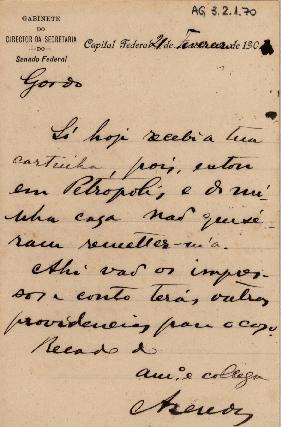 AG 3.2.1.70
GABINETE
DO
DIRECTOR DA SECRETARIA
DO
Senado Federal
Capital Federal, 21 de Fevereiro de 190
Gordo
Só hoje recebi a tua
cartinha, pois, estou
em Petropolis, e de mi-
nha casa não quizé-
ram remetter-m'a.
Ahi vão os impres-
sos e conto terás outras
providencias para o caso.
Recado do
am.º e collega